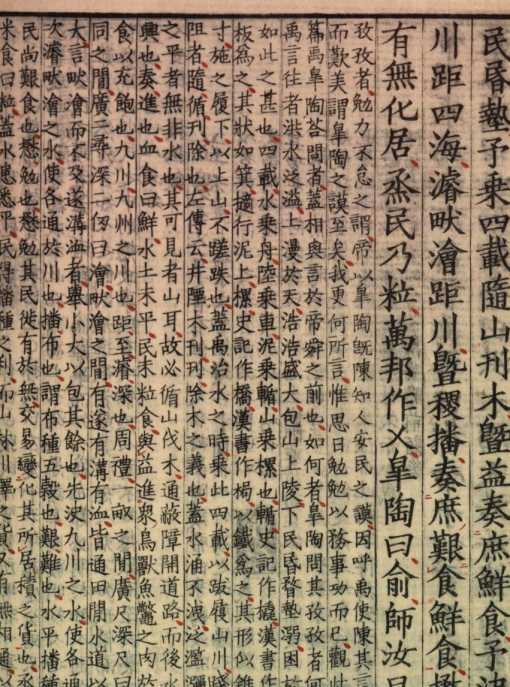 民昏墊予乘四載隨山刊木曁益奏庶鮮食予決
川距四海濬畎澮距川曁稷播奏庶艱食鮮食懋
有無化居烝民乃粒萬邦作乂皋陶曰俞師汝昌
孜孜者勉力不怠之謂帝以皋陶旣陳知人安民之謨因呼禹使陳其言
而歎美謂皋陶之謨至矣我更何所言惟思日勉勉以務事功而已觀此
篇禹皋陶荅問者蓋相與言於帝舜之前也如何者皋陶問其孜孜者何
禹言往者洪水泛溢上漫於天浩浩盛大包山上陵下民昏瞀墊溺困於
如此之甚也四載水乘舟陸乘車泥乘輴山乘樏也輴史記作橇漢書作
板爲之其狀如箕擿行泥上樏史記作橋漢書作梮以鐵爲之其形似錐
寸施之履下以上山不蹉跌也蓋禹治水之時乘此四載以跋履山川踐
阻者隨循刊除也左傳云井堙木刊刊除木之義也蓋水涌不洩泛濫
之平者無非水也其可見者山耳故必循山伐木通蔽障開道路而後水
興也奏進也血食曰鮮水土未平民未粒食與益進衆鳥獸魚鼈之肉於
食以充飽也九川九州之川也距至濬深也周禮一畝之間廣尺深尺曰
同之間廣二尋深二仞曰澮畎澮之間有遂有溝有洫皆通田間水道以
大言畎澮而不及遂溝洫者舉小大以包其餘也先決九川之水使各通
次濬畎澮之水使各通於川也播布也謂布種五穀也艱難也水平播種
民尚艱食也懋勉也懋勉其民徙有於無交易變化其所居積之貨也烝
米食曰粒蓋水患悉平民得播種之利而山林川澤之貨又有無相通以